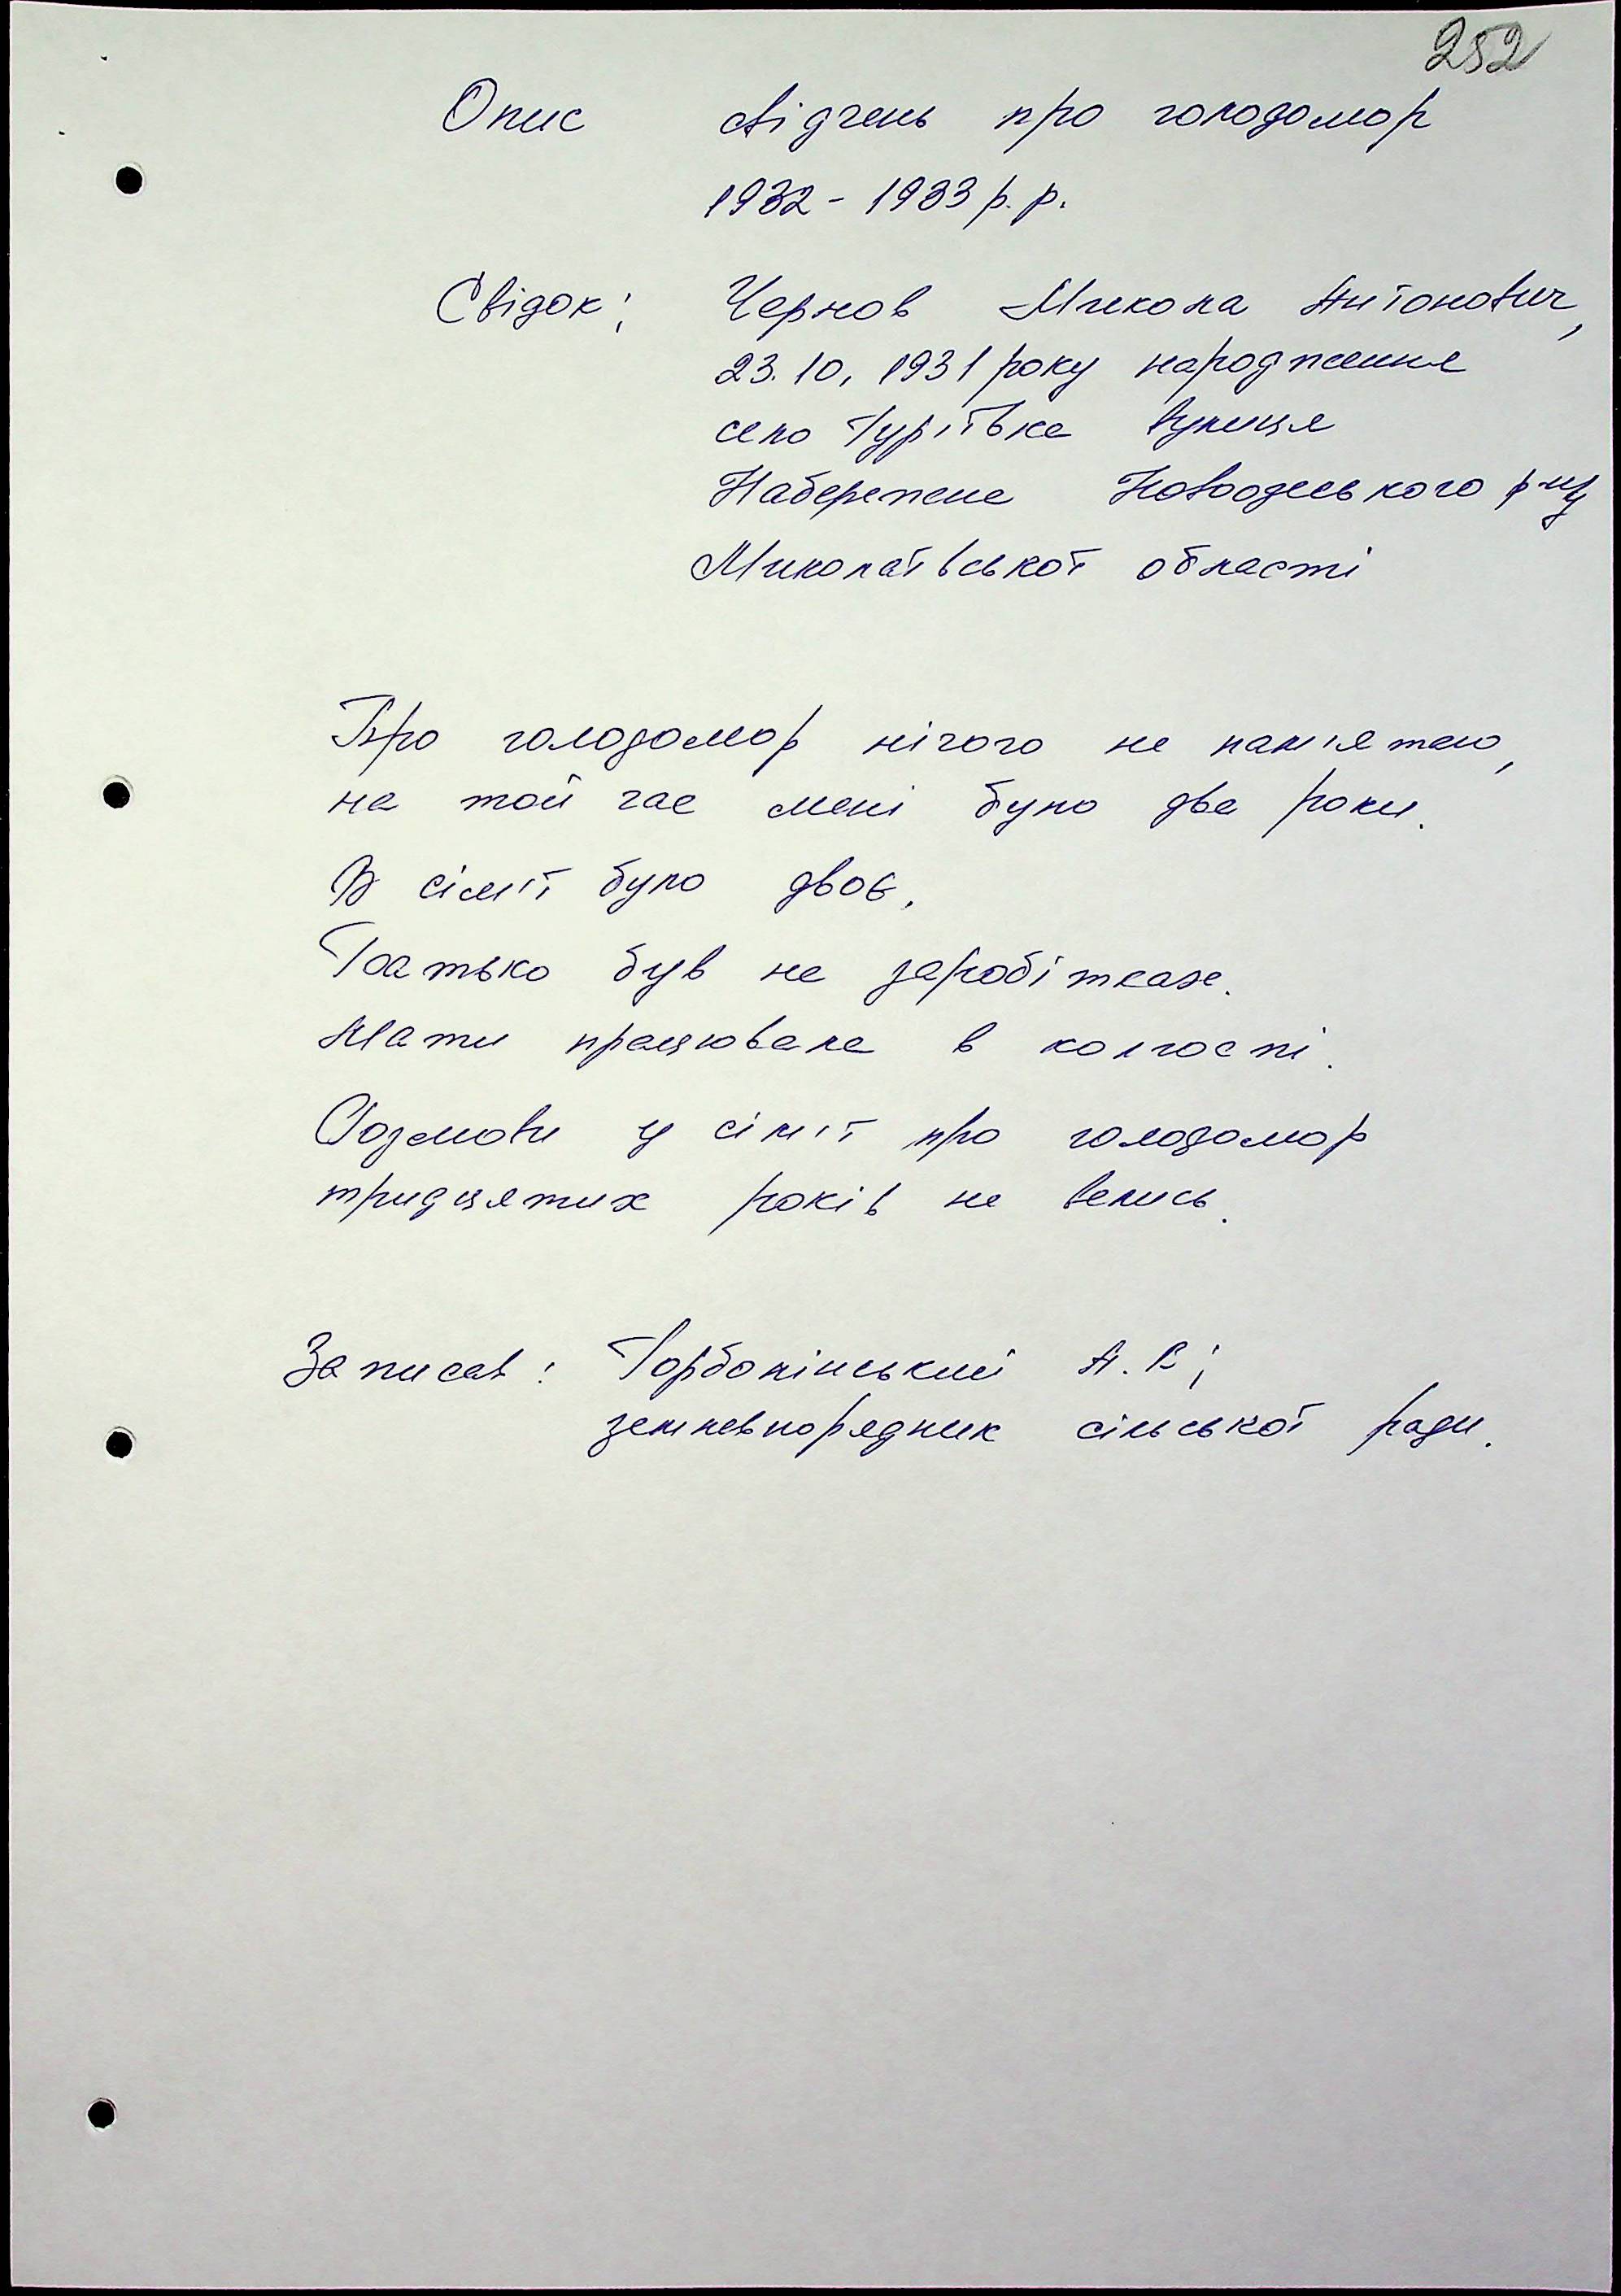 252
Опис свідчень про голодомор
1932 - 1933 р. р.
Свідок: Чернов Микола Антонович,
23. 10. 1931 року народження
село Гур'ївка вулиця
Набережна Новоодеського р-ну
Миколаївської області
Про голодомор нічого не пам'ятаю,
на той час мені було два роки.
В сім'ї було двоє.
Батько був на заробітках.
Мати працювала в колгоспі.
Розмови у сім'ї про голодомор
тридцятих років не велись.
Записав: Горболінський А. В;
землевпорядник сільської ради.